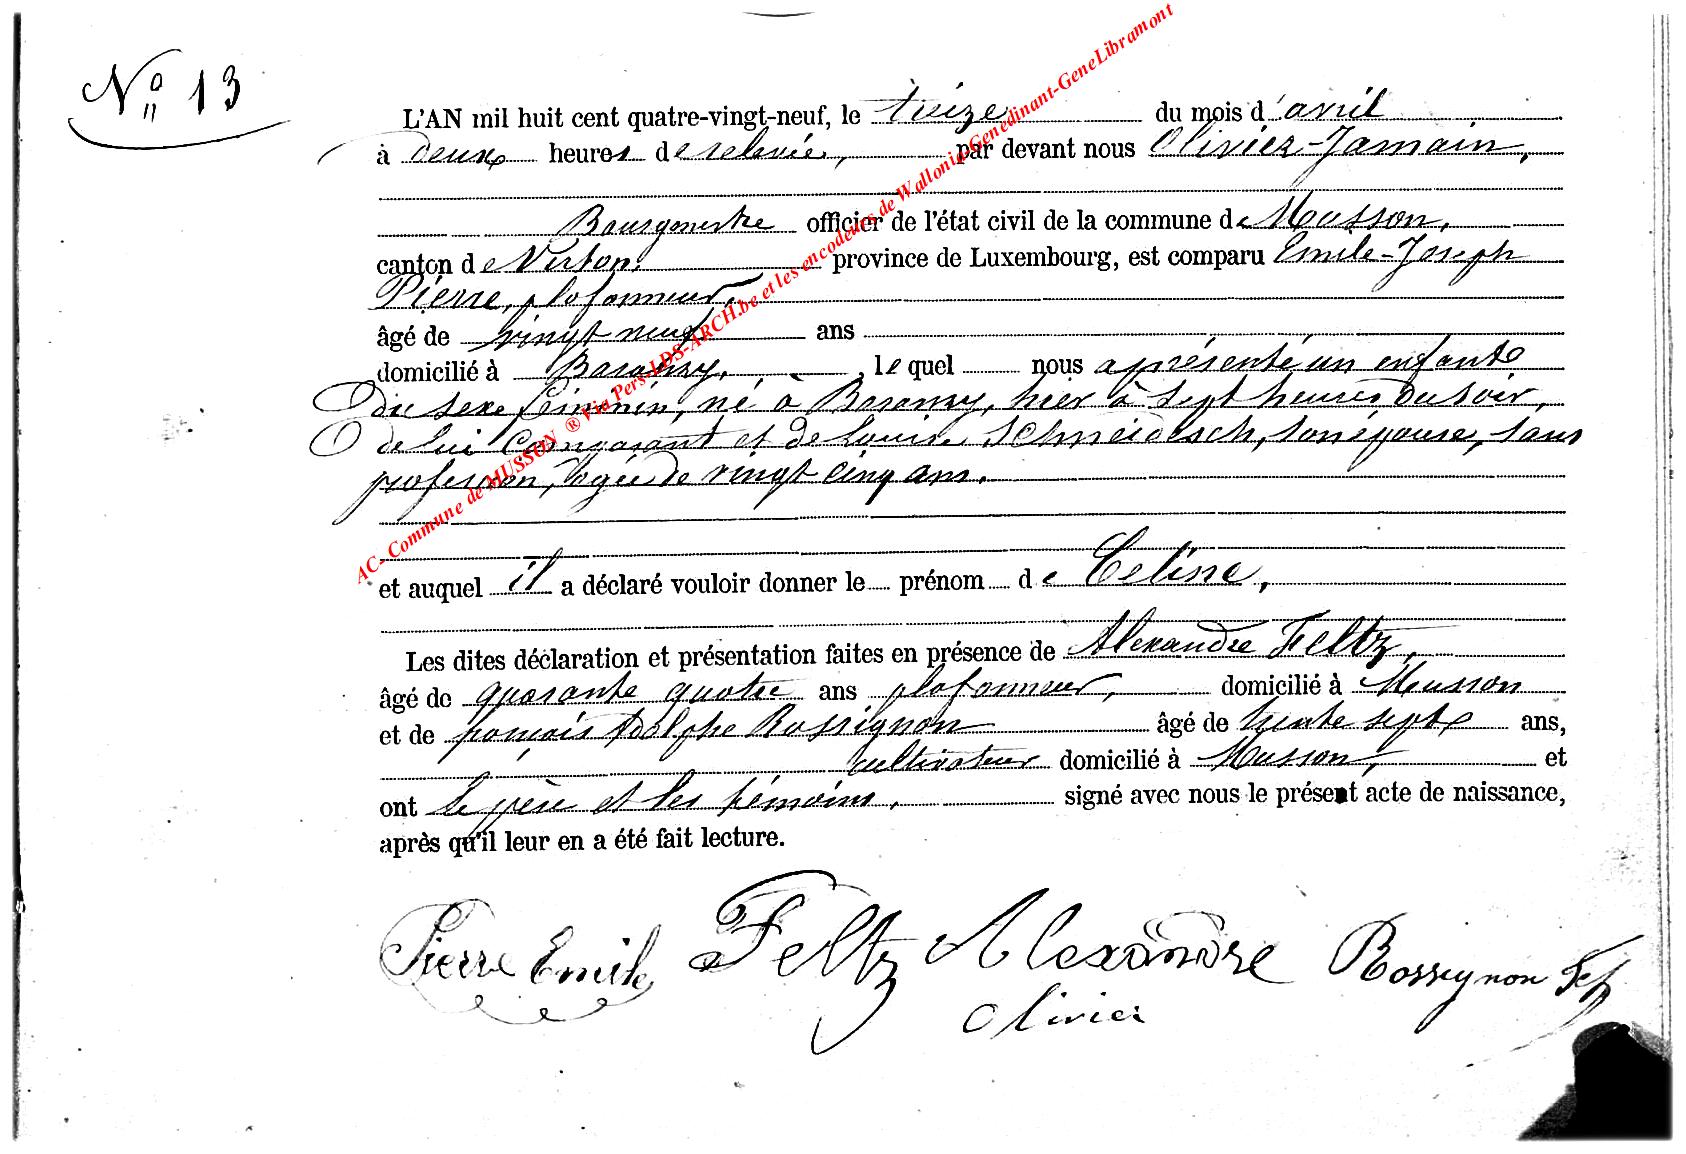 Nº 13
L'AN mil huit cent quatre-vingt-neuf, le treize du mois d'avril
à deux heures de relevée, par devant nous Olivier-Jamain,
Bourgmestre officier de l'état civil de la commune de Musson,
canton de Virton, province de Luxembourg, est comparu Emile-Joseph
Pierre, plafonneur,
âgé de vingt neuf ans
domicilié à Baranzy, lequel nous a présenté un enfant
du sexe féminin, né à Baranzy, hier à sept heures du soir,
de lui comparant et de Louise Schneidesch, son épouse, sans
profession, âgée de vingt cinq ans.
et auquel il a déclaré vouloir donner le prénom de Celine,
Les dites déclaration et présentation faites en présence de Alexandre Feltz,
âgé de quarante quatre ans plafonneur, domicilié à Musson
et de françois Adolphe Rossignon âgé de trente sept ans,
cultivateur domicilié à Musson, et
ont le père et les témoins, signé avec nous le présent acte de naissance,
après qu'il leur en a été fait lecture.
Pierre Emile Feltz Alexandre Rossignon
Olivier
AC- Commune de MUSSON ® Via Pers-LDS-ARCH.be et les encodeurs de Wallonia-Genedinant-GeneLibramont